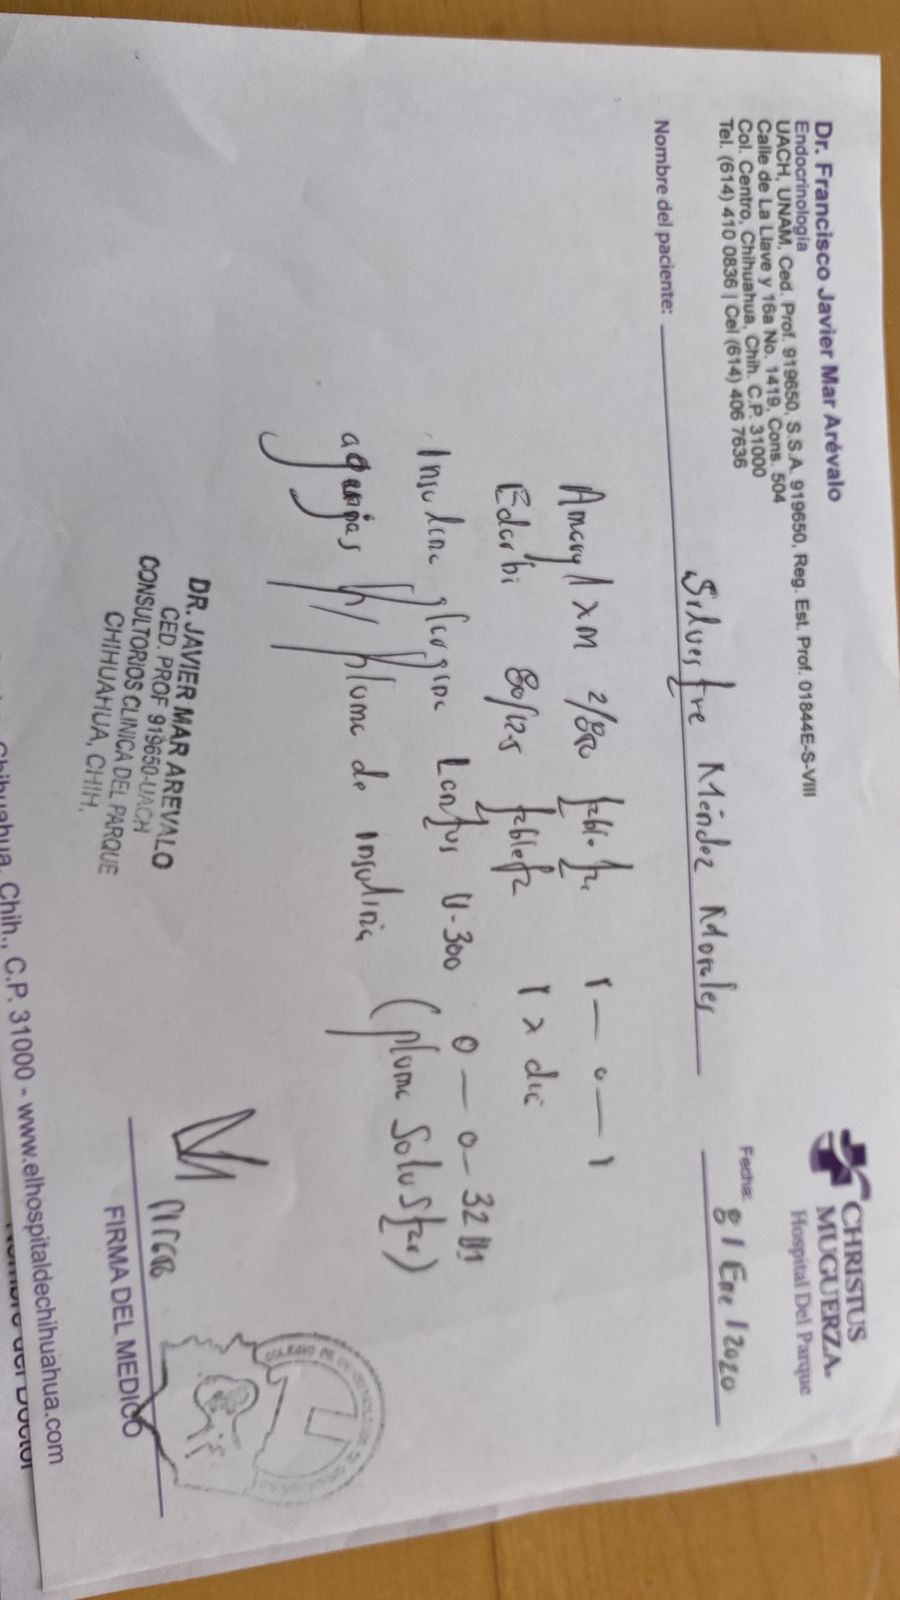 Dr. Francisco Javier Mar Arévalo
Endocrinología
UACH, UNAM, Ced. Prof. 919650, S.S.A. 919650, Reg. Est. Prof. 01844E-S-VIII
Calle de La Llave y 16a No. 1419, Cons. 504
Col. Centro, Chihuahua, Chih. C.P. 31000
Tel. (614) 410 0836 | Cel (614) 406 7636
CHRISTUS
MUGUERZA.
Hospital Del Parque
Fecha: 8 / Ene / 2020
Nombre del paciente: Silvestre Méndez Morales
Amaryl xM 2/850 tableta 1 — 0 — 1
Edarbi 80/12.5 tableta 1 x dia
Insulina glargina Lantus U-300 0 — 0 — 32 UI
agujas p/ pluma de insulina (pluma Solustar)
DR. JAVIER MAR AREVALO
CED. PROF 919650-UACH
CONSULTORIOS CLINICA DEL PARQUE
CHIHUAHUA, CHIH.
FIRMA DEL MEDICO
Chihuahua, Chih., C.P. 31000 - www.elhospitaldechihuahua.com
Nombre del Doctor